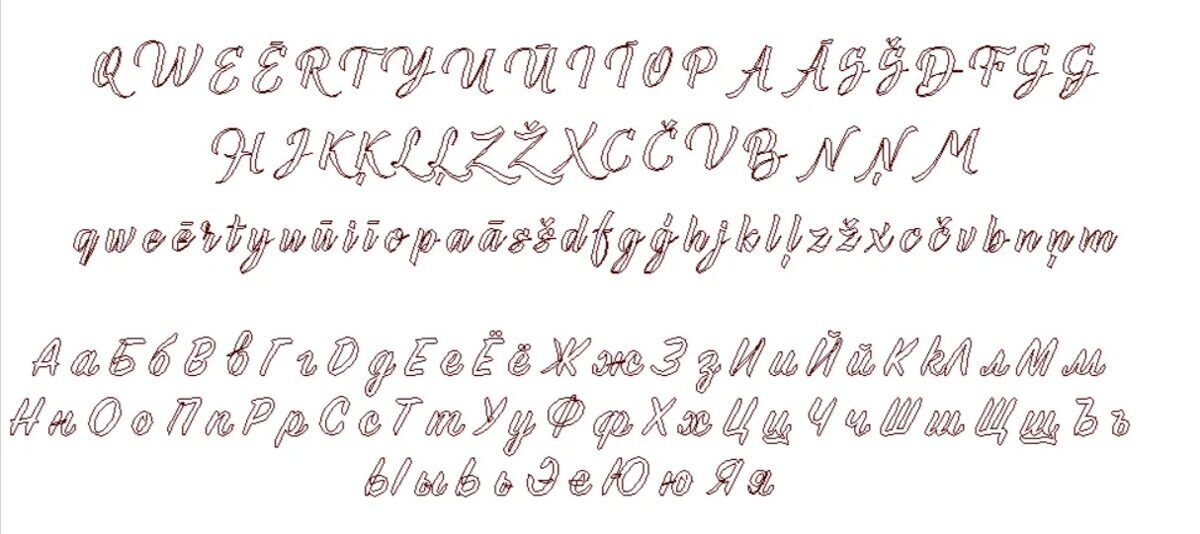 QWEĒRTYUŪIĪOPAĀSŠDFGG
HJKĶLĻZŽXCČVBNŅM
qweērtyuūiīopaāsšdfgģhjklļzžxcčvbnņm
АаБбВвГгДдЕеЁёЖжЗзИиЙйКкЛлМм
НнОоПпРрСсТтУуФфХхЦцЧчШшЩщЪъ
ЫыЬьЭэЮюЯя